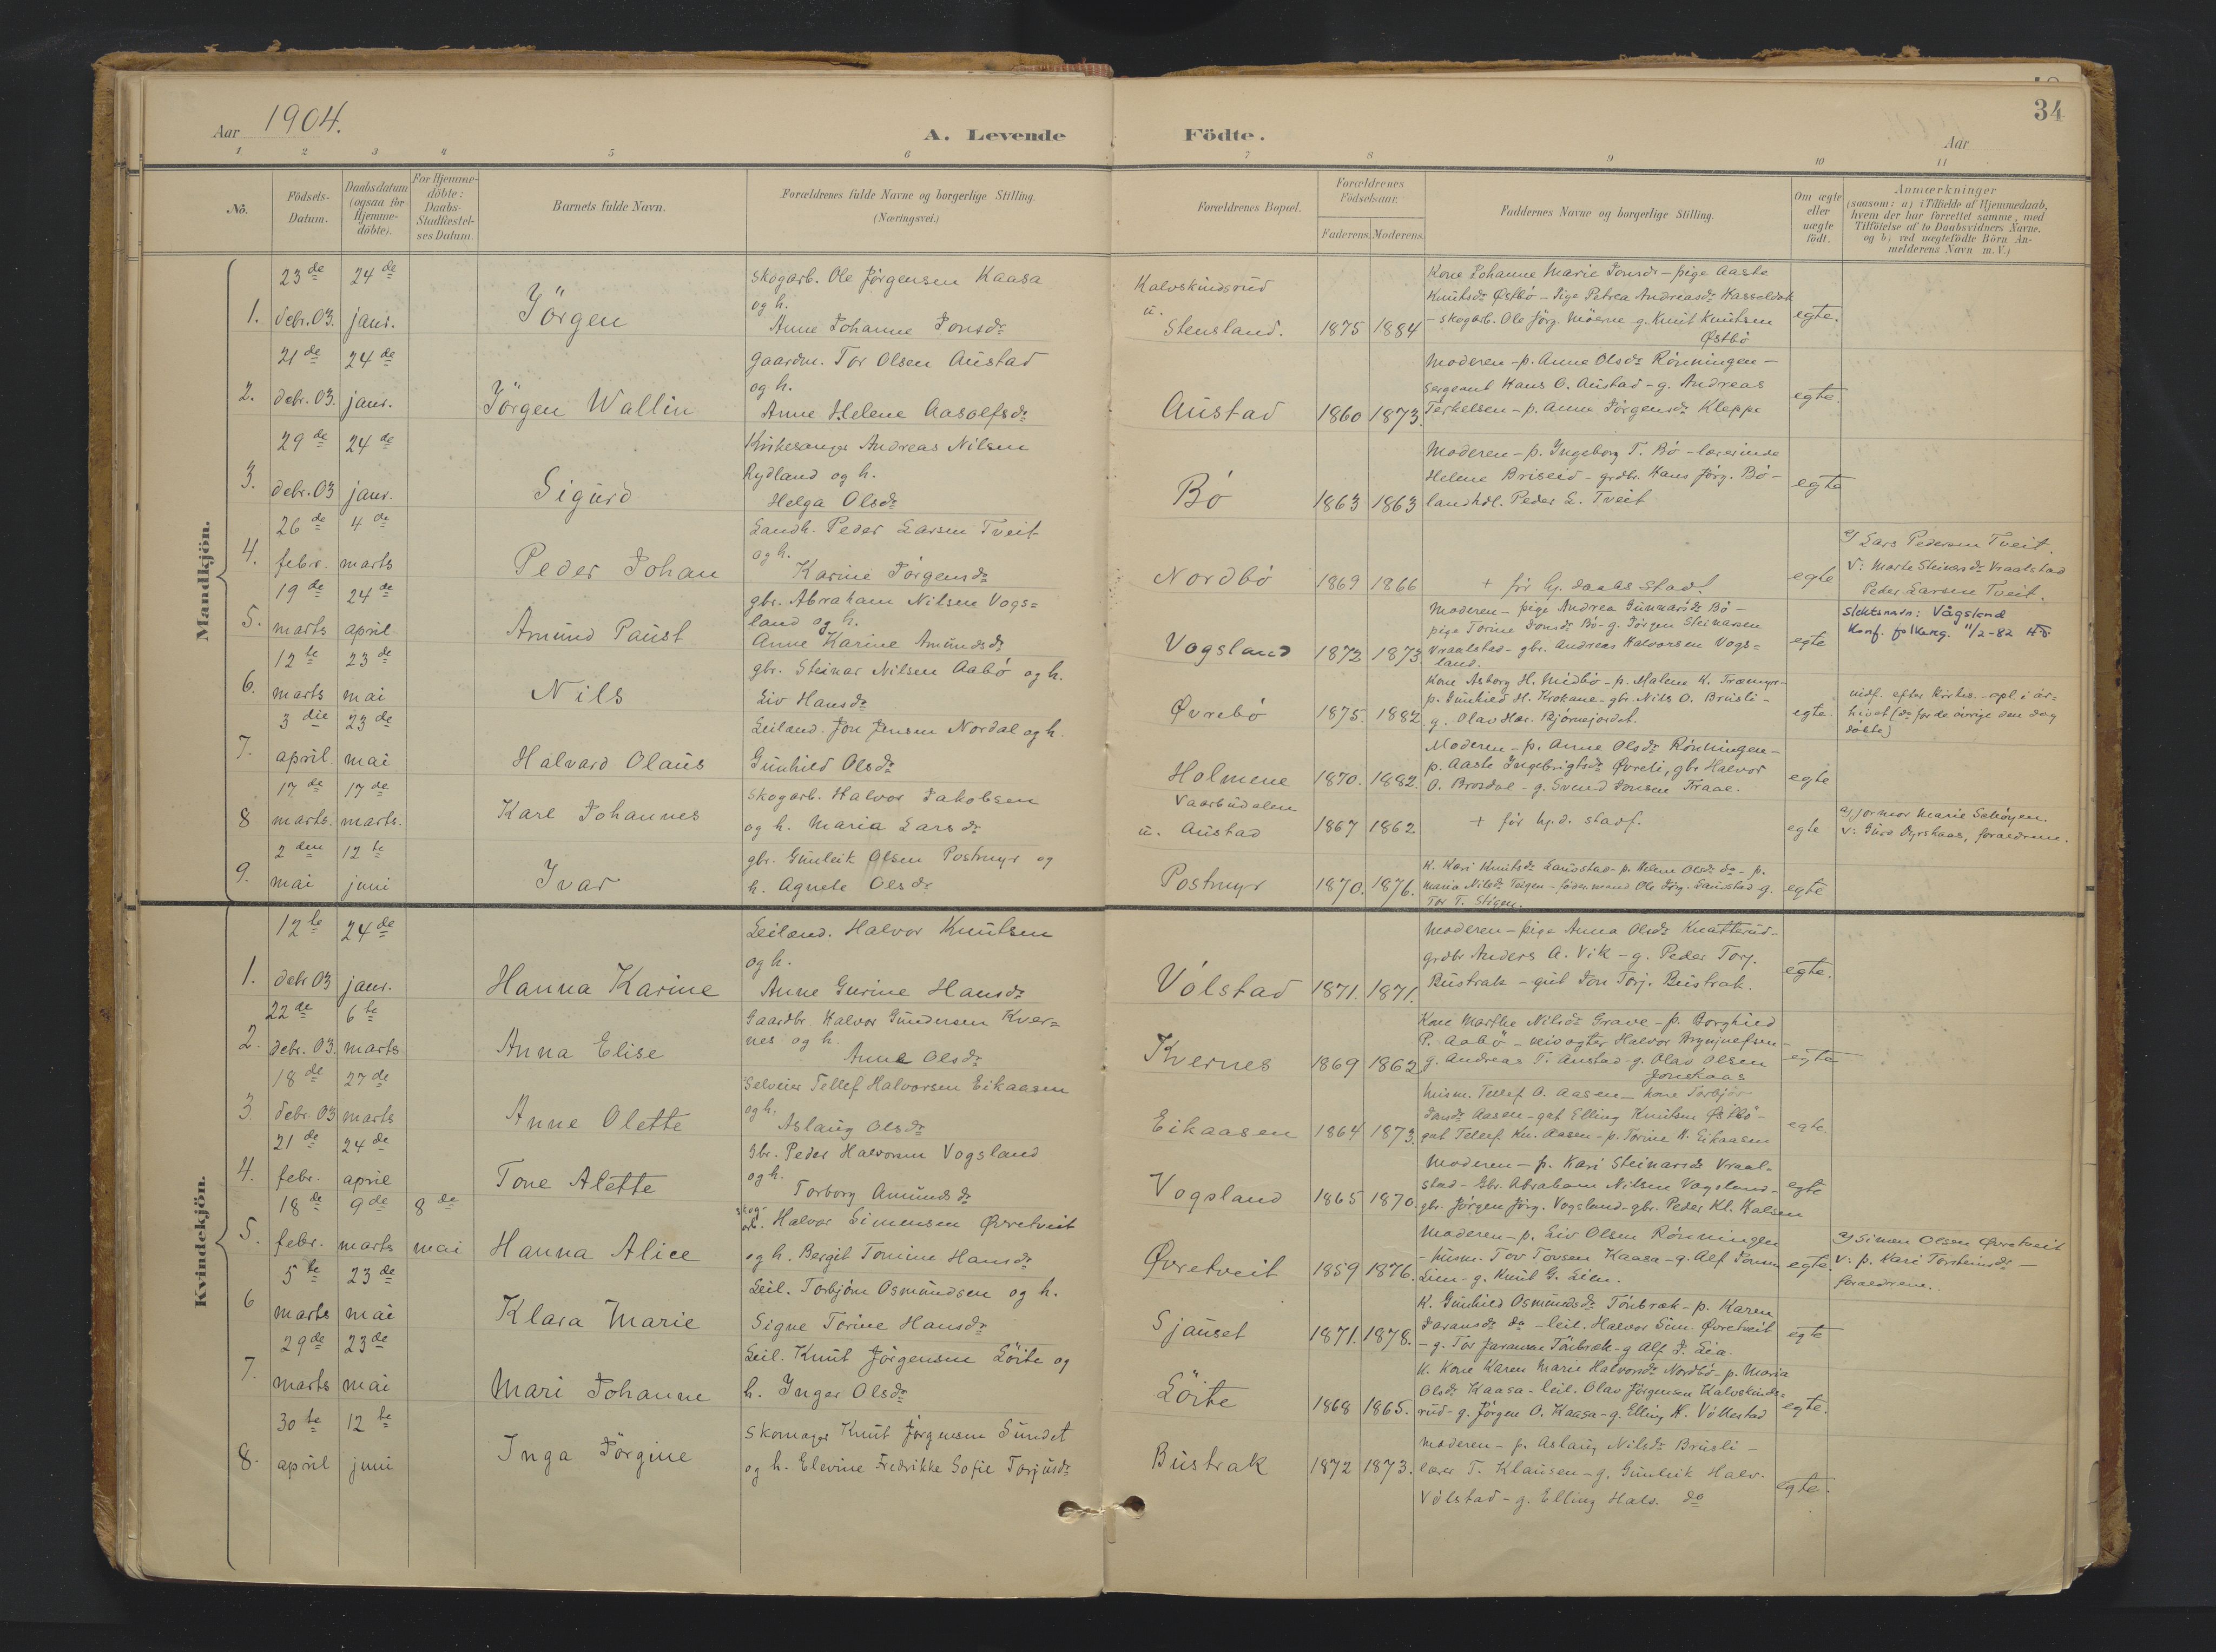 34
Aar 1904.
A. Levende Födte.
Aar
1 2 3 4 5 6 7 8 9 10 11
No.
Födsels-
Datum.
Daabsdatum
(ogsaa for
Hjemme-
döbte).
For Hjemme-
döbte:
Daabs-
Stadfæstel-
ses Datum.
Barnets fulde Navn.
Forældrenes fulde Navne og borgerlige Stilling.
(Næringsvei.)
Forældrenes Bopæl.
Forældrenes
Födselsaar.
Faderens. Moderens.
Faddernes Navne og borgerlige Stilling.
Om ægte
eller
uægte
födt.
Anmærkninger
(saasom: a) i Tilfælde af Hjemmedaab,
hvem der har forrettet samme, med
Tilföielse af to Daabsvidners Navne,
og b) ved uægtefödte Börn An-
melderens Navn m. V.)
Mandkjön.
1. 23de debr. 03. 24de janr.
Jörgen
Skogarb. Ole Jörgensen Kaasa
og h.
Anne Johanne Jonsdr
Kalvskindsrud
u.
Stensland. 1875 1884
Kone Johanne Marie Jonsdr - pige Aaste
Knutsdr Østbö - Pige Petrea Andreasdr Hasseldok
- skogarb. Ole Jörg. Moerne g. Knut Knutsen
Østbö
egte.
2. 21de debr. 03. 24de janr.
Jörgen Wallin
Gaardm. Tor Olsen Austad
og h.
Anne Helene Aasolfsdr
Austad 1860 1873.
Moderen - p. Anne Olsdr Rönningen -
Sergeant Hans O. Austad - g. Andreas
Terkelsen - p. Anne Jörgensdr Kleppe
egte.
3. 29de debr. 03 24de janr.
Sigurd
Kirkesanger Andreas Nilsen
Rydland og h.
Helga Olsdr
Bö 1863 1863
Moderen - p. Ingeborg T. Bö - lærerinde
Helene Briseid - grdbr. Hans Jörg. Bö -
landhdl. Peder L. Tveit
egte
4. 26de febr. 4de marts
Peder Johan
Landh. Peder Larsen Tveit
og h.
Karine Jörgensdr
Nordbö 1869 1866
+ för hj. daabs stadf.
egte
a) Lars Pedersen Tveit.
V: Marte Steinarsdr Vraalstad
Peder Larsen Tveit.
5. 19de marts 24de april
Amund Paust
gbr. Abraham Nilsen Vogs=
land og h.
Anne Karine Amundsdr
Vogsland 1872 1873
Moderen - pige Andrea Gunnarsdr Bö -
pige Torine Jonsdr Bö - g. Jörgen Steinarsen
Vraalstad - gbr. Andreas Halvorsen Vogs=
land.
egte
Slektsnavn: Vågsland
Konf. folkereg. 11/2-82
6. 12te marts 23de mai
Nils
gbr. Steinar Nilsen Aabö og h.
Liv Hansdr
Øvrebö 1875. 1882.
Kone Asborg H. Midbö - p. Malene K. Træmyr-
p. Gunhild H. Krokane - gbr. Nils O. Brusli -
g. Olav Hav. Bjørnejordet.
egte.
7. 3die april 23de mai
Halvard Olaus
Leiland. Jon Jensen Nordal og h.
Gunhild Olsdr
Holmene 1870. 1882.
Moderen - p. Anne Olsdr Rönningen -
p. Aaste Ingebrigtsdr Øvreli, gbr Halvor
O. Brosdal - g. Svend Jonsen Traae.
egte
8 17de marts. 17de marts.
Karl Johannes
Skogarb. Halvor Jakobsen
og h. Maria Larsdr
Vaarbudalen
u. Austad 1867 1862
+ før hj.d. stadf.
egte
a) jormor Marie Schöyen.
V: Guro Dyrskaas, forældrene.
9. 2den mai 12te juni
Ivar
gbr. Gunleik Olsen Postmyr og
h. Agnete Olsdr
Postmyr 1870. 1876.
K. Kari Knutsdr Laurstad - p. Helene Olsdr do - p.
Maria Nilsdr Teigen - födermand Ole Jörg. Laurstad - g.
Tor T. Stigen.
egte
Kvindekjön.
1. 12te debr 03 24de janr.
Hanna Karine
Leilænd. Halvor Knutsen
og h.
Anne Gurine Hansdr
Völstad 1871. 1871.
Moderen - pige Anna Olsdr Knatterud -
grdbr Anders A. Vik - g. Peder Torj.
Bustrak - gut Jon Torj. Bustrak.
egte.
2. 22de debr. 03. 6te marts
Anna Elise
Gaardbr. Halvor Gundersen Kver=
nes og h.
Anne Olsdr
Kvernes 1869 1862
Kone Marthe Nilsdr Grave - p. Borghild
P. Aabö - veivogter Halvor Brynjulfsen -
g. Andreas T. Austad - g. Olav Olsen
Jonskaas
egte
3 18de debr. 03 27de marts
Anne Olette
Selveier Tellef Halvorsen Eikaasen
og h.
Aslaug Olsdr
Eikaasen 1864 1873.
husm. Tellef O. Aasen - kone Torbjör
Jonsdr Aasen - gut Elling Knutsen Østbö -
gut Tellef Kn. Aasen - p. Torine H. Eikaasen
egte.
4. 21de febr. 24de april
Tone Alette
Gbr. Peder Halvorsen Vogsland
og h.
Torborg Amundsdr
Vogsland 1865 1870.
Moderen - p. Kari Steinarsdr Vraal=
stad - Gbr. Abraham Nilsen Vogsland -
gbr. Jörgen Jörg. Vogsland - gbr. Peder Kl. Kalsen
egte
5. 18de febr. 9de marts 8de mai
Hanna Alice
skog-
arb. Halvor Simensen Øvretveit
og h. Bergit Tomine Hansdr
Øvretveit 1859 1876.
Moderen - p. Liv Olsen Rönningen
- husm. Tov Tovsen Kaasa - g. Alf Jonsen
Lien - g. Knut G. Lien.
egte.
a) Simen Olsen Øvretveit
V: p. Kari Torsteinsdr -
forældrene.
6 5te marts 23de mai
Klara Marie
Leil. Torbjörn Osmundsen og h.
Signe Torine Hansdr
Sjauset 1871. 1878.
K. Gunhild Osmundsdr Tönbræk - p. Karen
Jaransdr do - leil. Halvor Sim. Øvretveit
- g. Tor Jaransen Tönbræk - g Alf J. Lia.
egte
7. 29de marts 23de mai
Mari Johanne
Leil. Knut Jörgensen Löite og
h. Inger Olsdr
Löite 1868 1865.
K. Kone Karen Marie Halvorsdr Nordbö - p. Maria
Olsdr Kaasa - leil. Olav Jörgensen Kalvskinds=
rud - g. Jörgen O. Kaasa - g. Elling H. Völlestad
egte.
8. 30te april 12te juni
Inga Jörgine
Skomager Knut Jörgensen Sundet
og h. Elevine Fredrikke Sofie Torjusdr
Bustrak 1872 1873.
Moderen - p. Aslaug Nilsdr Brusli -
lærer T. Klausen - g. Gunleik Halv.
Völstad - g. Elling Halv. do
egte.